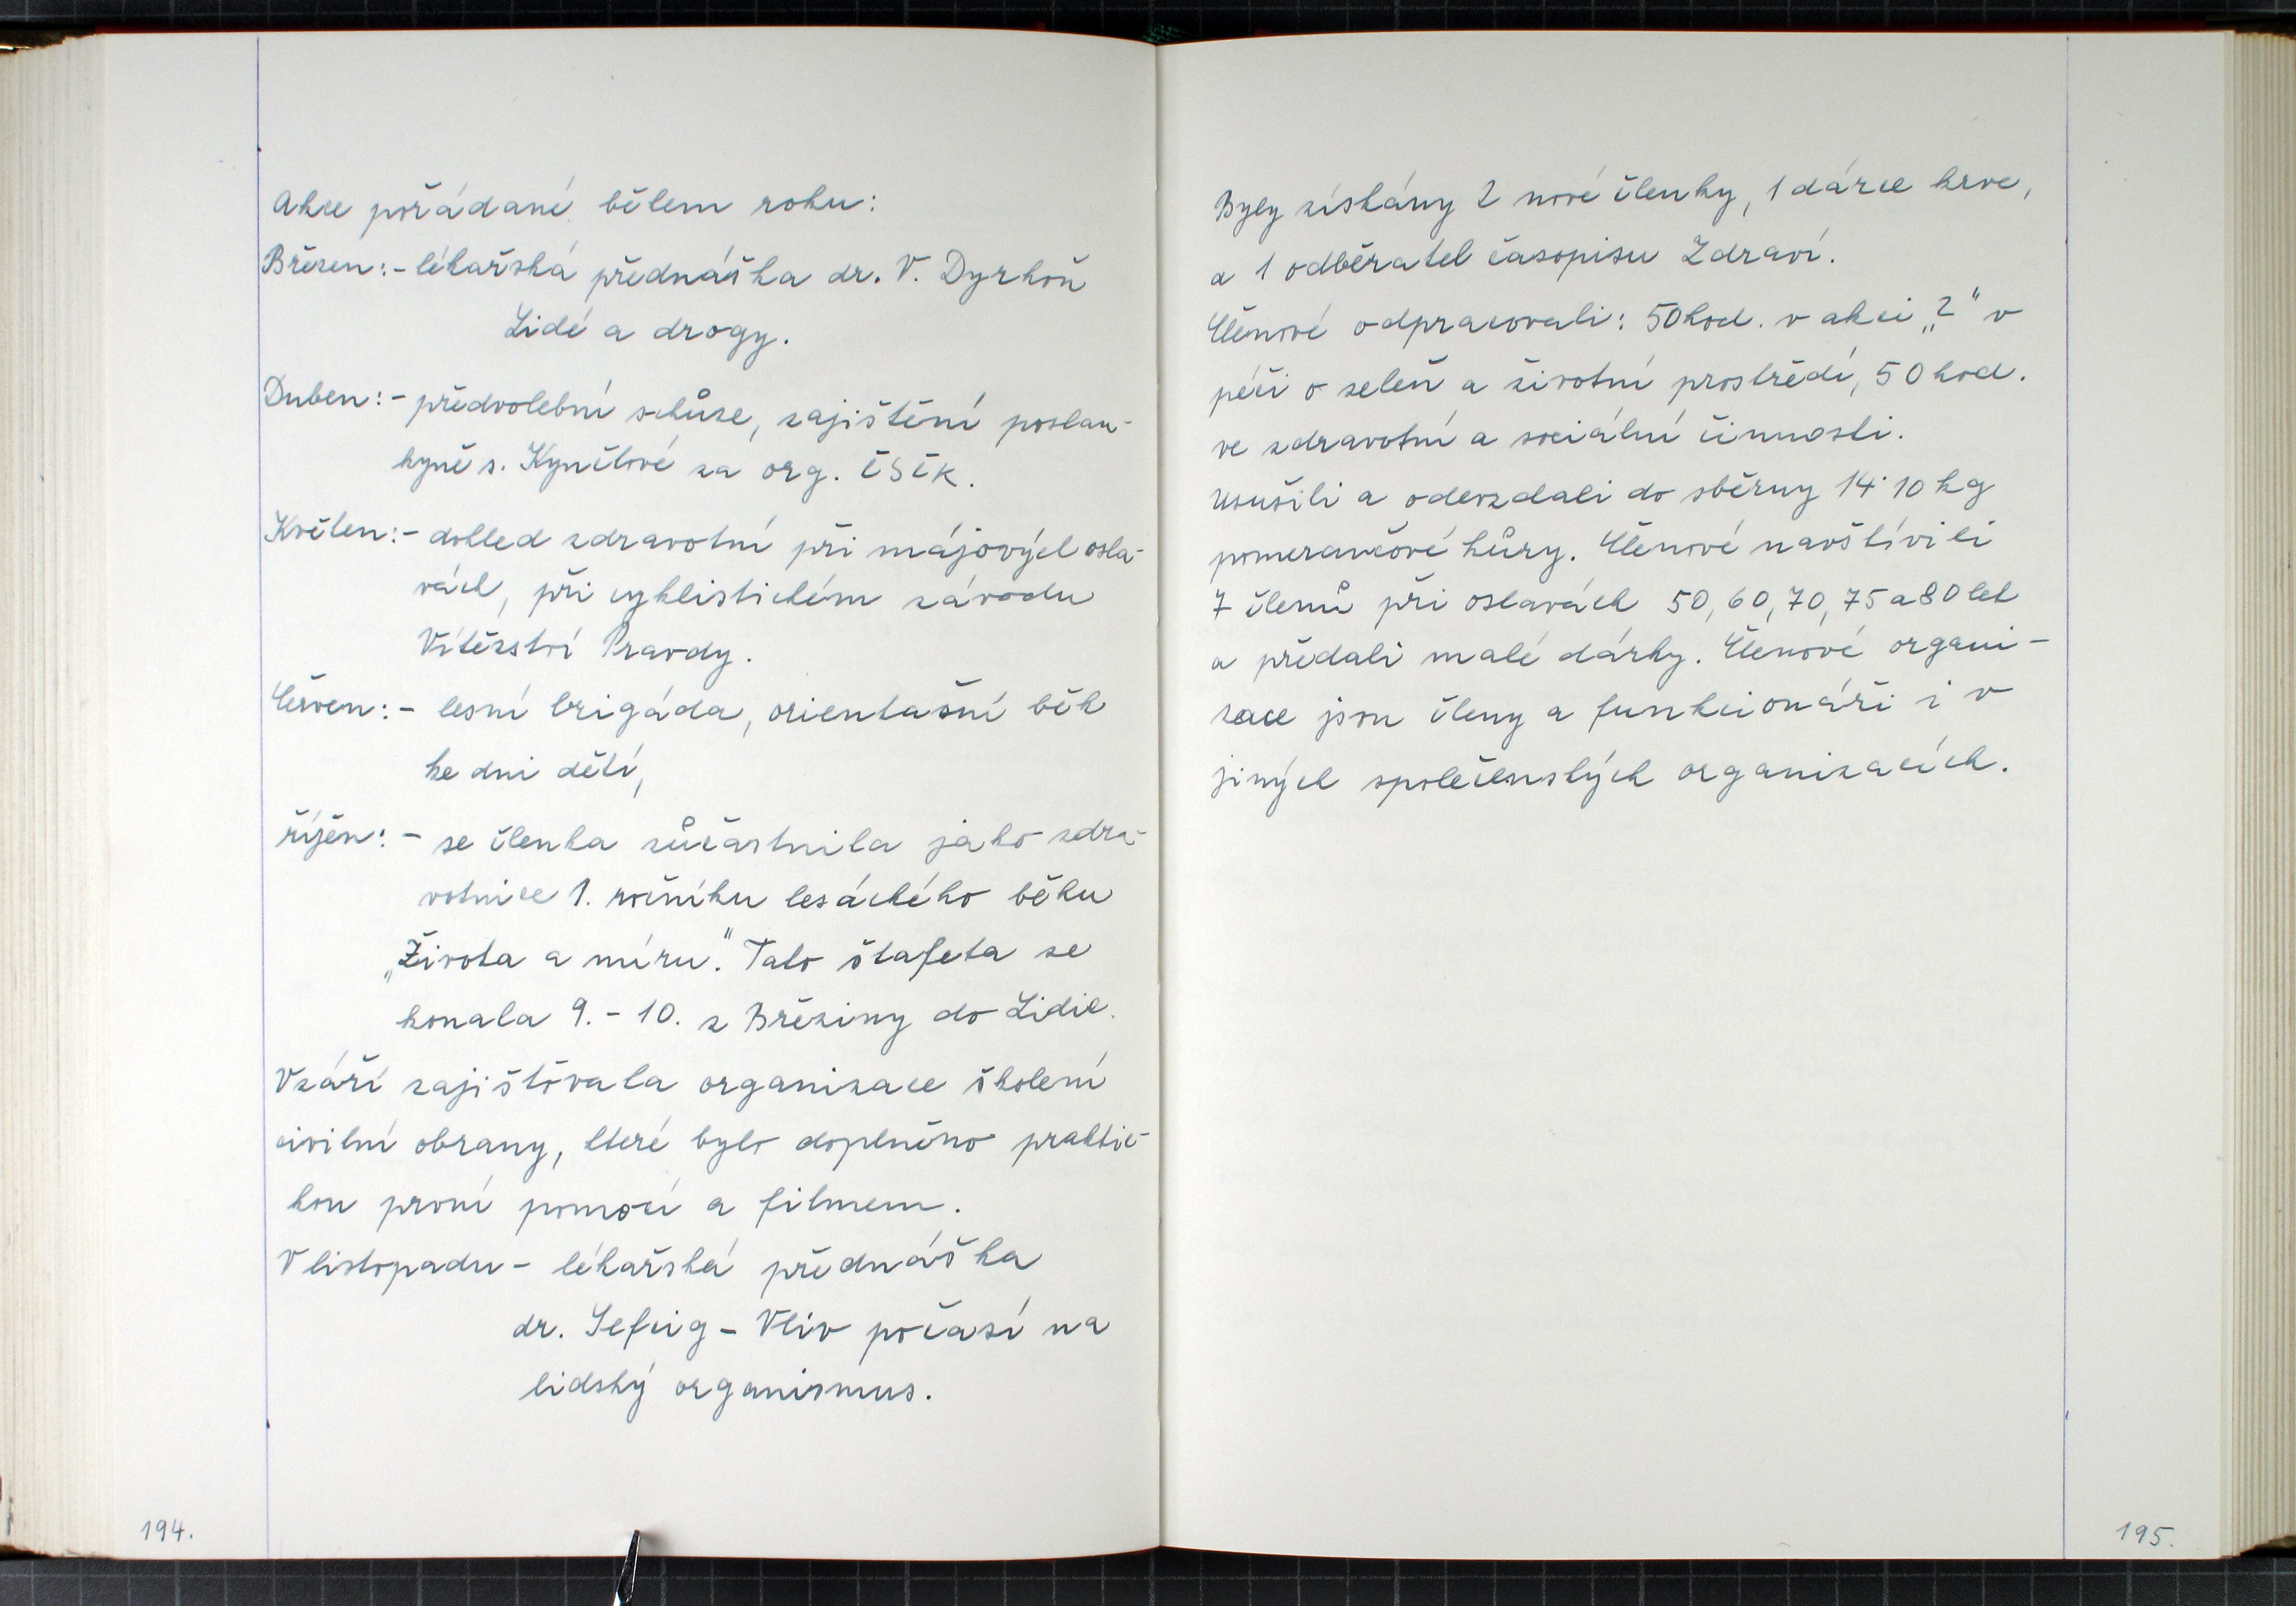 Akce pořádané během roku:
Březen: - lékařská přednáška dr. V. Dyrhoň
Lidé a drogy.
Duben: - předvolební schůze, zajištění poslan-
kyně s. Kynčlové za org. ČSČK.
Květen: - dohled zdravotní při májových osla-
vách, při cyklistickém závodu
Vítězství Pravdy.
Červen: - lesní brigáda, orientační běh
ke dni dětí,
říjen: - se členka zůčastnila jako zdra-
votnice 1. ročníku lesáckého běhu
„Života a míru." Tato štafeta se
konala 9. - 10. z Březiny do Lidic.
V září zajišťovala organizace školení
civilní obrany, které bylo doplněno praktic-
kou první pomocí a filmem.
V listopadu - lékařská přednáška
dr. Sefcig - Vliv počasí na
lidský organismus.
194.
Byly získány 2 nové členky, 1 dárce krve,
a 1 odběratel časopisu Zdraví.
Členové odpracovali: 50 hod. v akci „Z" v
péči o zeleň a životní prostředí, 50 hod.
ve zdravotní a sociální činnosti.
Usušili a odevzdali do sběrny 14·10 kg
pomerančové kůry. Členové navštívili
7 členů při oslavách 50, 60, 70, 75 a 80 let
a předali malé dárky. Členové organi-
zace jsou členy a funkcionáři i v
jiných společenských organizacích.
195.